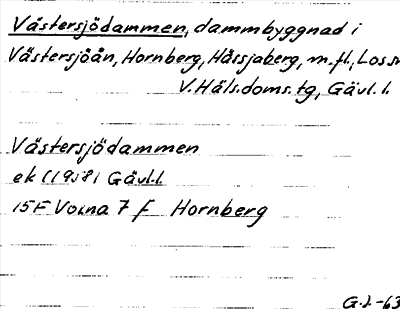 Västersjödammen, dammbyggnad i
Västersjöån, Hornberg, Håssjaberg, m.fl., Los sn
V. Häls. doms. tg, Gävl. l.
Västersjödammen
ek (1958) Gävl.l.
15F Voxna 7 f Hornberg
G.J-63